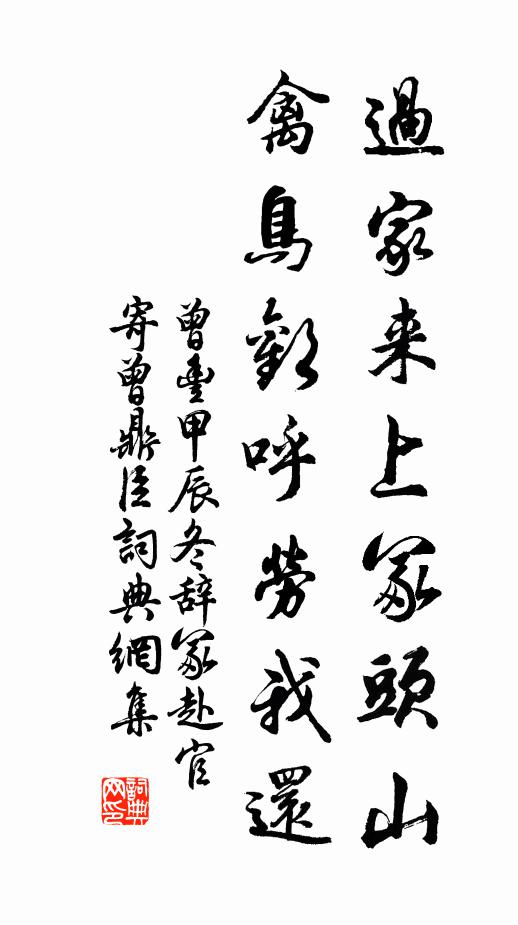 過家来上冢頭山
禽鳥歡呼勞我還
曾豐甲辰冬辞冢赴官
寄曾鼎臣詞典網集
詞典網印